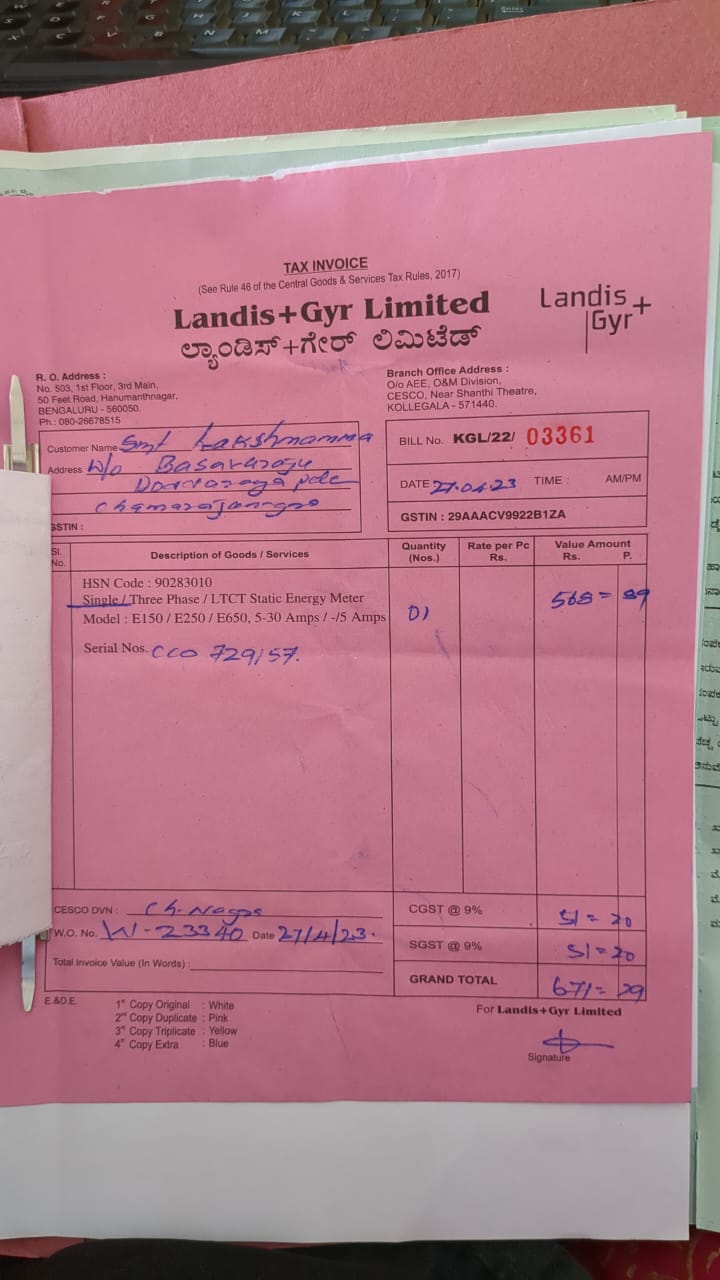 TAX INVOICE
(See Rule 46 of the Central Goods & Services Tax Rules, 2017)
Landis+Gyr Limited
ಲ್ಯಾಂಡಿಸ್+ಗೇರ್ ಲಿಮಿಟೆಡ್
Landis
Gyr+
R. O. Address :
No. 503, 1st Floor, 3rd Main,
50 Feet Road, Hanumanthnagar,
BENGALURU - 560050.
Ph.: 080-26678515
Branch Office Address :
O/o AEE, O&M Division,
CESCO, Near Shanthi Theatre,
KOLLEGALA - 571440.
Customer Name Smt Lakshmamma
Address W/o Basavaraju
Chamarajanagar
GSTIN :
BILL No. KGL/22/ 03361
DATE 27.04.23 TIME : AM/PM
GSTIN : 29AAACV9922B1ZA
Sl. No. Description of Goods / Services Quantity (Nos.) Rate per Pc Rs. Value Amount Rs. P.
HSN Code : 90283010
Single / Three Phase / LTCT Static Energy Meter 568 = 89
Model : E150 / E250 / E650, 5-30 Amps / -/5 Amps 01
Serial Nos. CCO 729157.
CESCO DVN : Ch-Nagar
W.O. No. W-23340 Date 27/4/23.
Total Invoice Value (In Words) :
CGST @ 9% 51 = 20
SGST @ 9% 51 = 20
GRAND TOTAL 671 = 29
E.&O.E.
1st Copy Original : White
2nd Copy Duplicate : Pink
3rd Copy Triplicate : Yellow
4th Copy Extra : Blue
For Landis+Gyr Limited
Signature